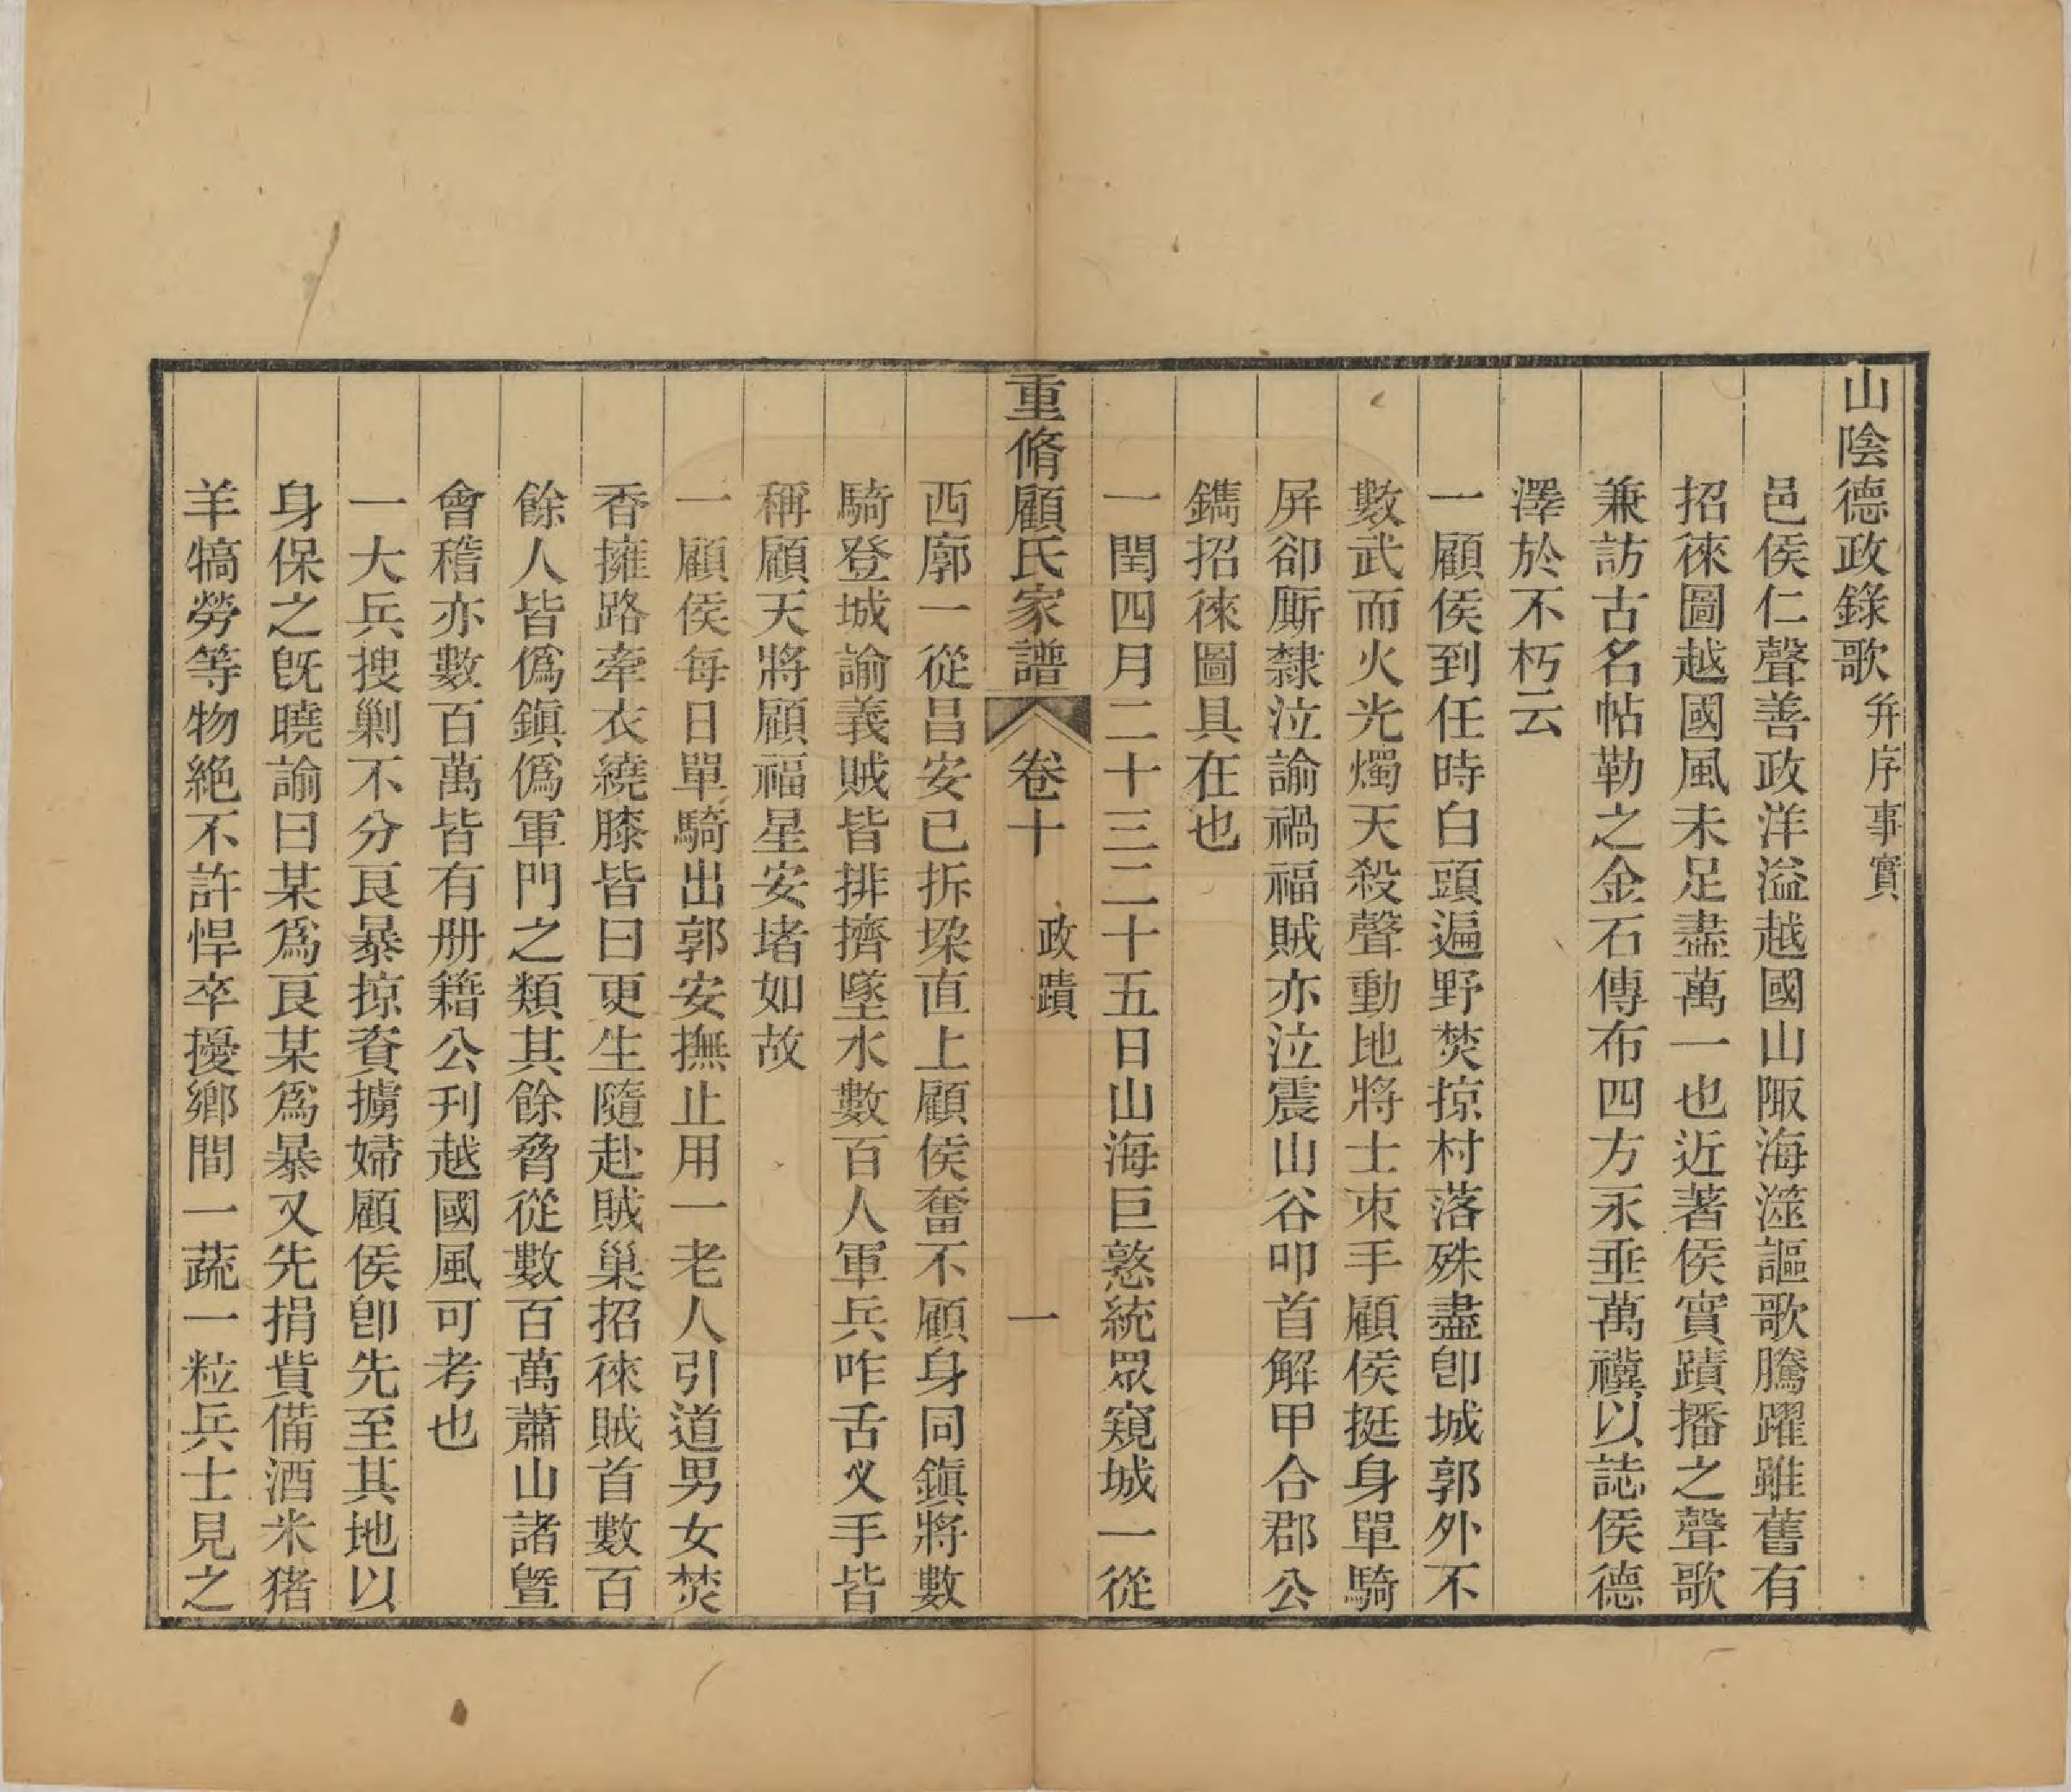 山陰德政錄歌 幷序事實
邑侯仁聲善政洋溢越國山陬海澨謳歌騰躍雖舊有
招徠圖越國風未足盡萬一也近著侯實蹟播之聲歌
兼訪古名帖勒之金石傳布四方永垂萬禩以誌侯德
澤於不朽云
一顧侯到任時白頭遍野焚掠村落殊盡卽城郭外不
數武而火光燭天殺聲動地將士束手顧侯挺身單騎
屏卻厮隸泣諭禍福賊亦泣震山谷叩首解甲合郡公
鐫招徠圖具在也
一閏四月二十三二十五日山海巨憝統眾窺城一從
重脩顧氏家譜 卷十 政蹟 一
西廓一從昌安已拆垜直上顧侯奮不顧身同鎭將數
騎登城諭義賊皆排擠墜水數百人軍兵咋舌义手皆
稱顧天將顧福星安堵如故
一顧侯每日單騎出郭安撫止用一老人引道男女焚
香擁路牽衣繞膝皆曰更生隨赴賊巢招徠賊首數百
餘人皆僞鎭僞軍門之類其餘脅從數百萬蕭山諸曁
會稽亦數百萬皆有册籍公刊越國風可考也
一大兵搜剿不分良暴掠資擄婦顧侯卽先至其地以
身保之旣曉諭曰某爲良某爲暴又先捐貲備酒米猪
羊犒勞等物絕不許悍卒擾鄉間一蔬一粒兵士見之